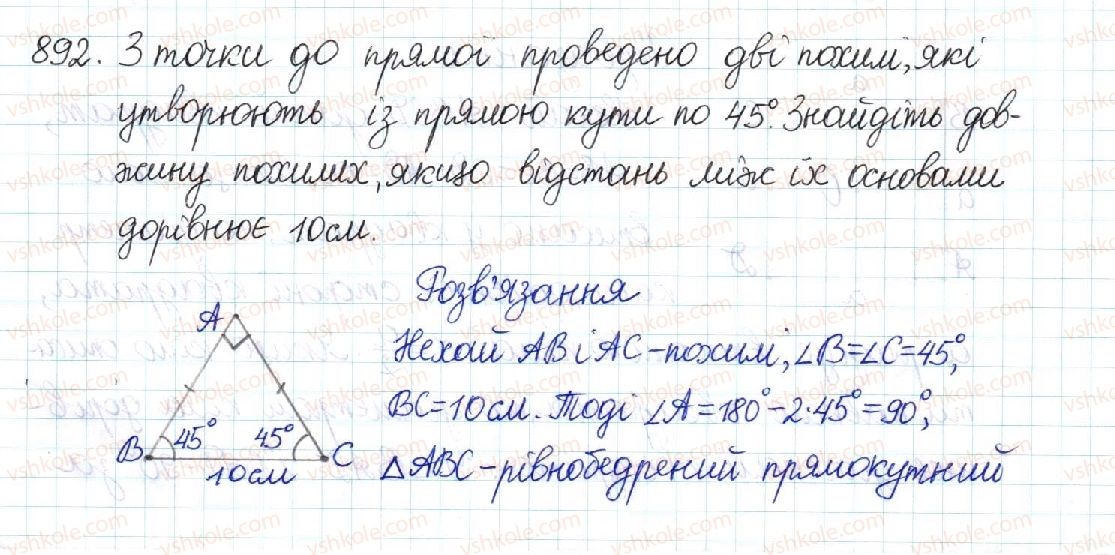 892. З точки до прямої проведено дві похилі, які
утворюють із прямою кути по 45°. Знайдіть дов-
жину похилих, якщо відстань між їх основами
дорівнює 10см.
Розв'язання
Нехай AB і AC - похилі, ∠B=∠C=45°,
BC=10см. Тоді ∠A=180°-2·45°=90°,
△ABC - рівнобедрений прямокутний
A
B 45° 45° C
10см
vshkole.com